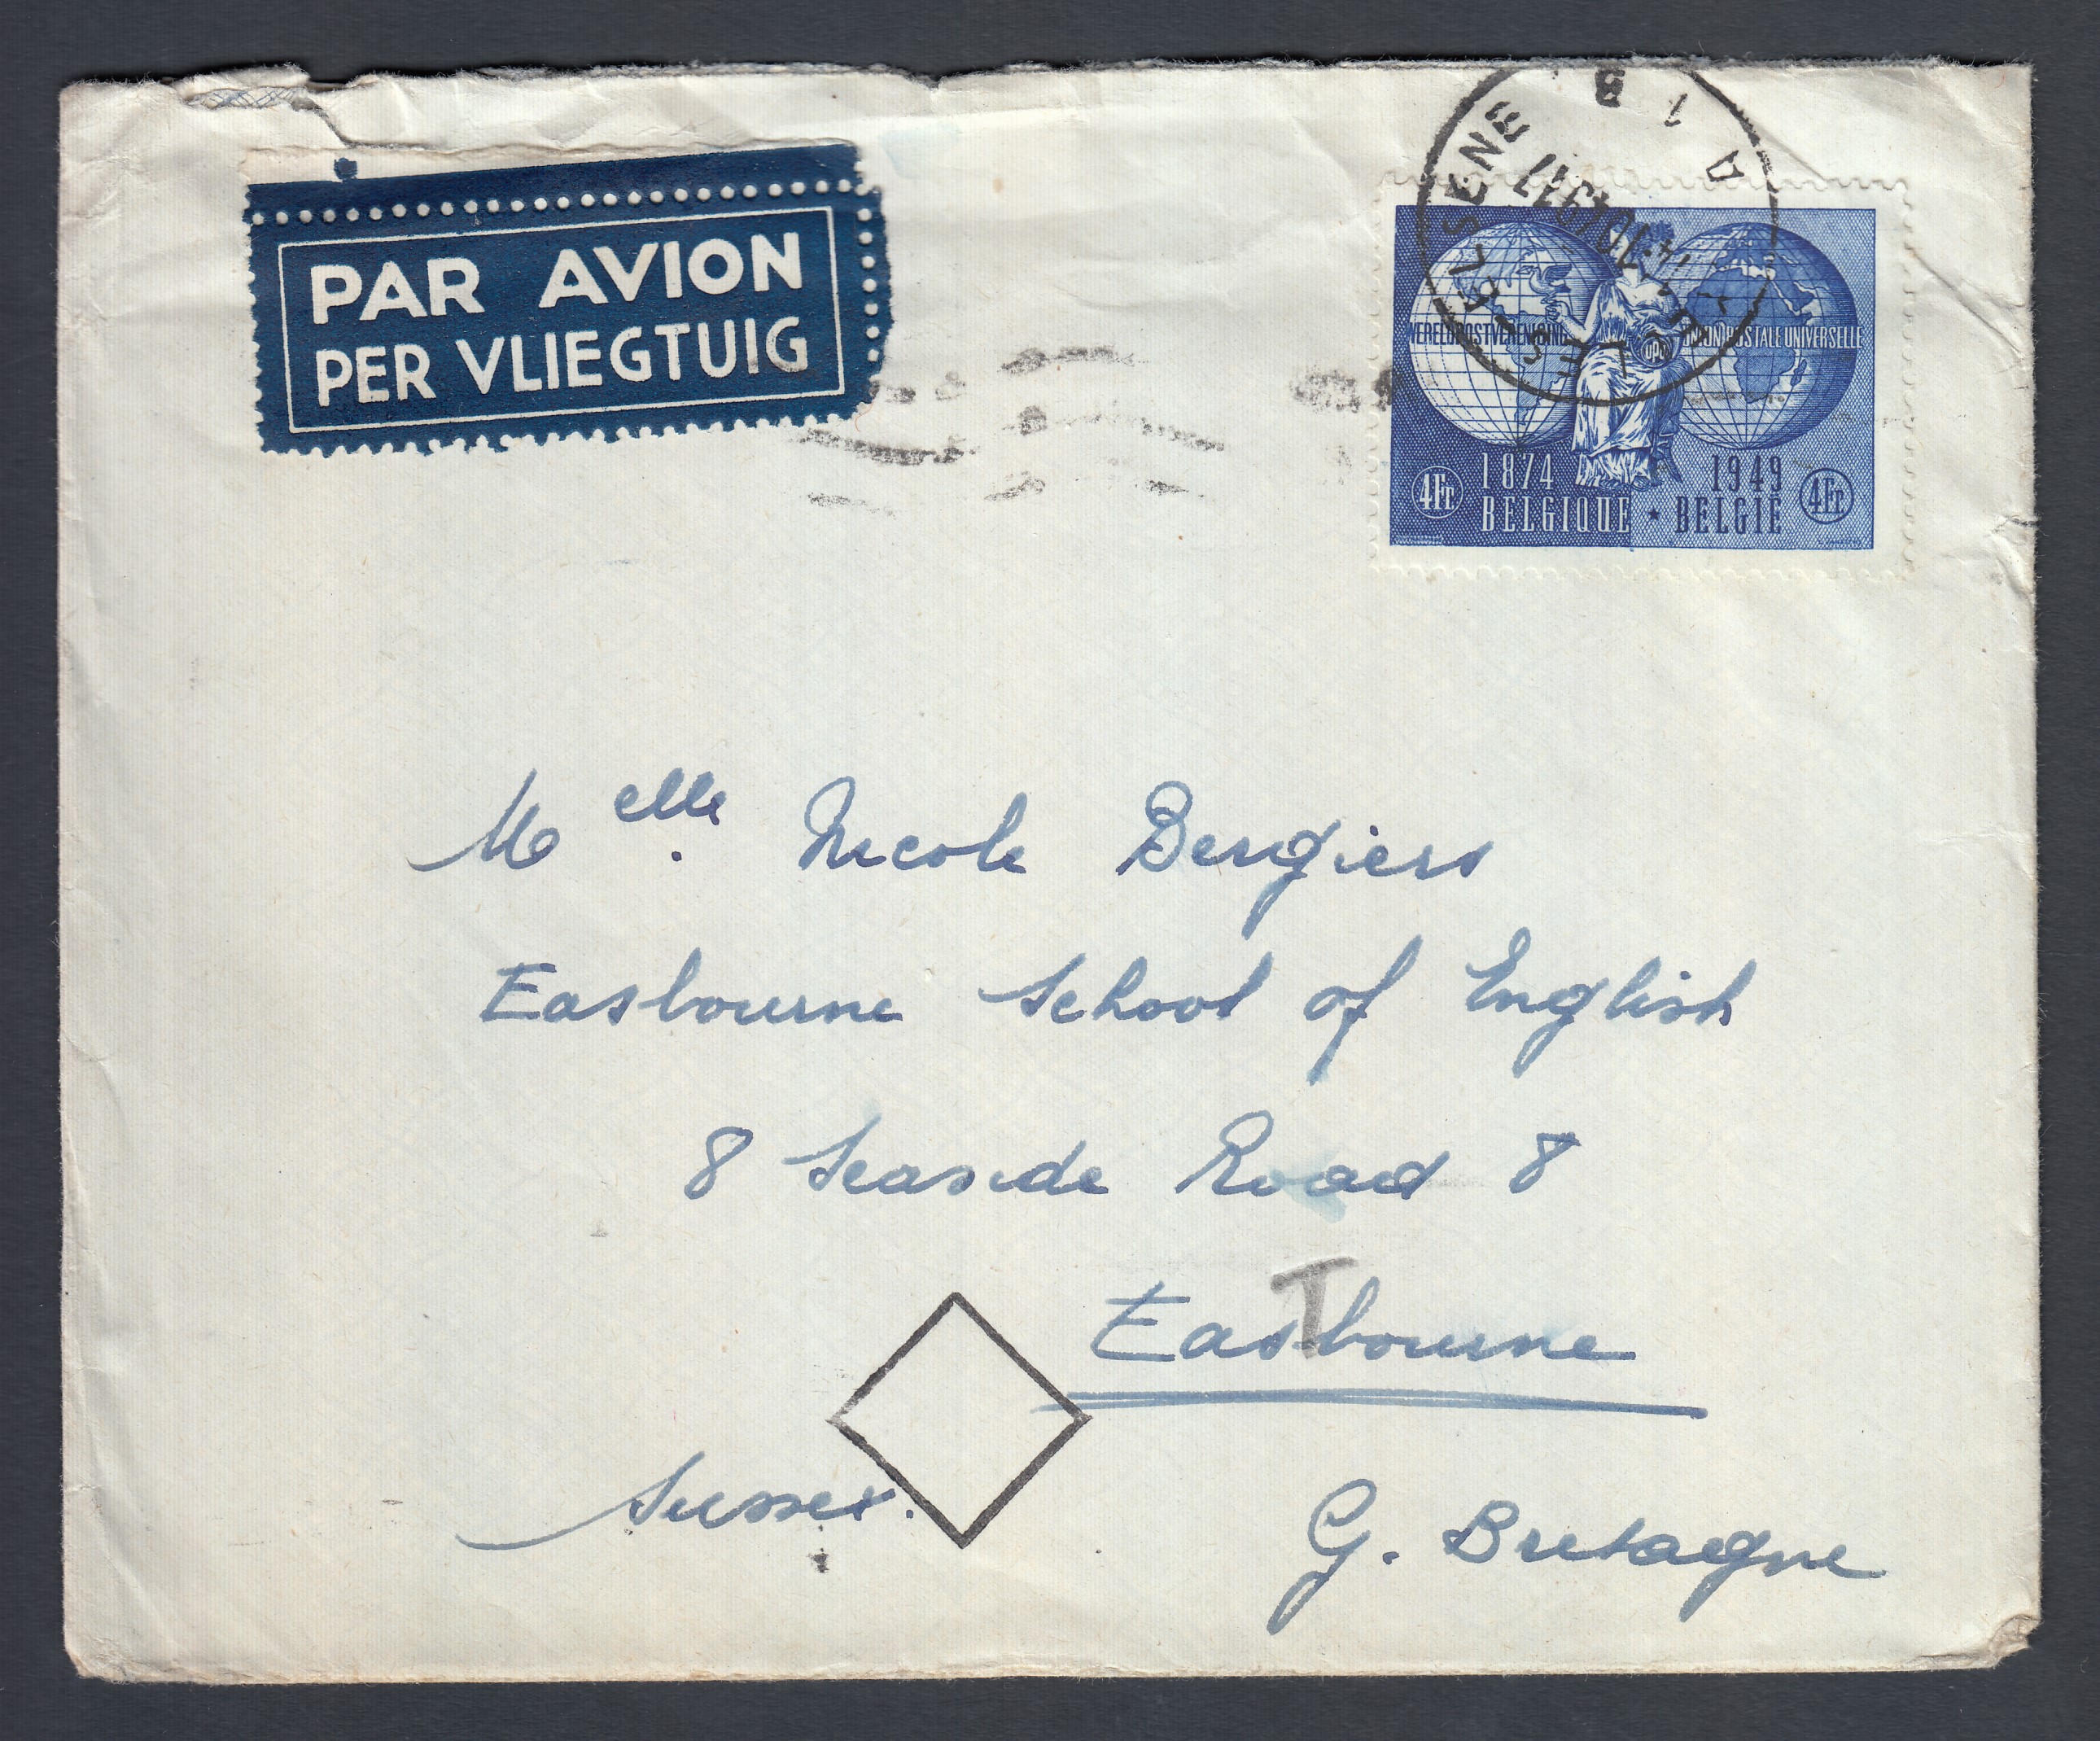 PAR AVION
PER VLIEGTUIG
IXELLES
ELSENE
1 B
A
WERELDPOSTVERENIGING
UPU
UNION POSTALE UNIVERSELLE
1874 1949
4Fr BELGIQUE ★ BELGIË 4Fr
Melle. Nicole Bergiers
Easbourne School of English
8 Seaside Road 8
T
Easbourne
Sussex.
G. Bretagne